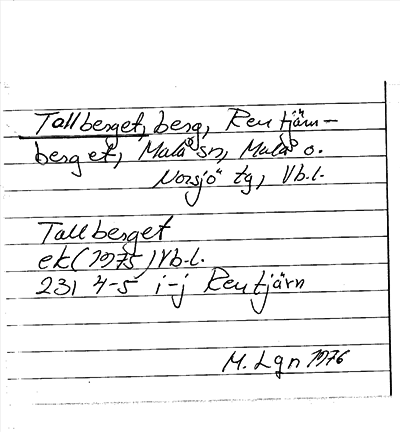 Tallberget, berg, Rentjärn-
berget, Malå sn, Malå o.
Norsjö tg, Vb.l.
Tallberget
ek (1975) Vb.l.
231 4-5 i-j Rentjärn
M. Lgn 1976